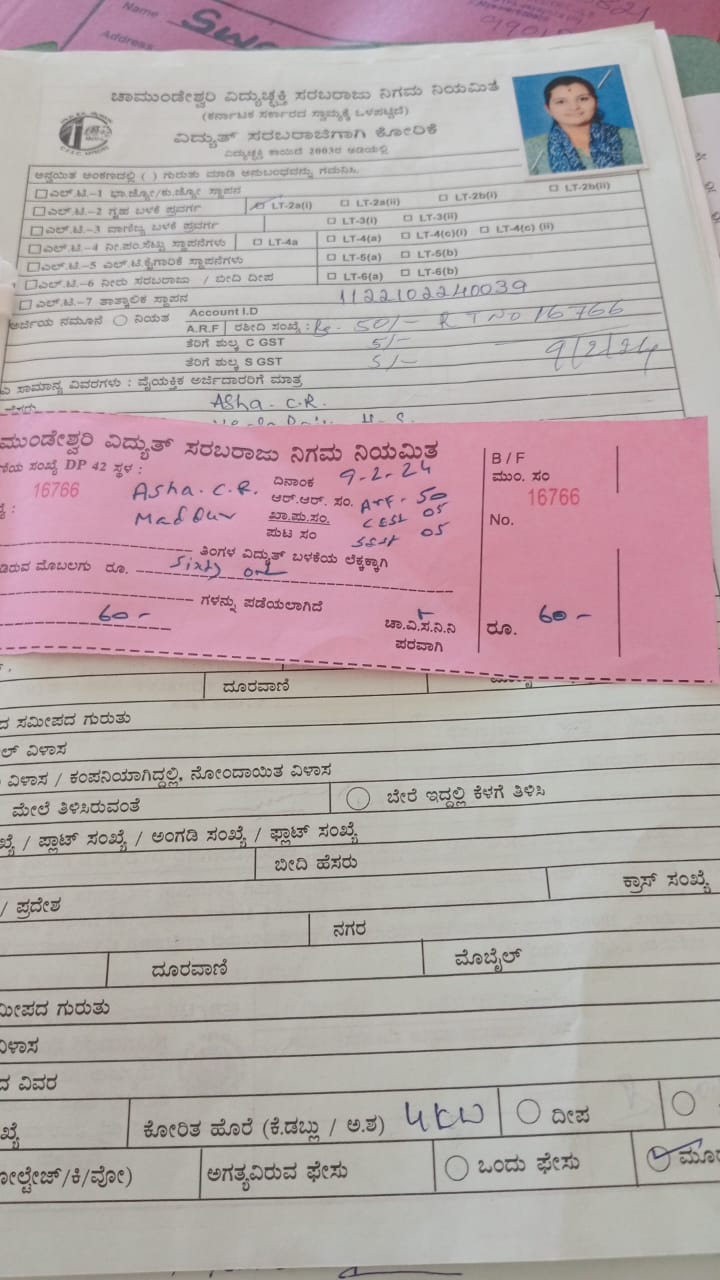 Name
Address
ಚಾಮುಂಡೇಶ್ವರಿ ವಿದ್ಯುಚ್ಛಕ್ತಿ ಸರಬರಾಜು ನಿಗಮ ನಿಯಮಿತ
(ಕರ್ನಾಟಕ ಸರ್ಕಾರದ ಸ್ವಾಮ್ಯಕ್ಕೆ ಒಳಪಟ್ಟಿದೆ)
ವಿದ್ಯುತ್ ಸರಬರಾಜಿಗಾಗಿ ಕೋರಿಕೆ
ವಿದ್ಯುಚ್ಛಕ್ತಿ ಕಾಯಿದೆ 2003ರ ಅಡಿಯಲ್ಲಿ
ಅನ್ವಯಿತ ಅಂಕಣದಲ್ಲಿ ( ) ಗುರುತು ಮಾಡಿ ಅನುಬಂಧವನ್ನು ಗಮನಿಸಿ.
ಎಲ್.ಟಿ.-1 ಭಾ.ಜ್ಯೋ/ಕು.ಜ್ಯೋ ಸ್ಥಾಪನ
ಎಲ್.ಟಿ.-2 ಗೃಹ ಬಳಕೆ ಪ್ರವರ್ಗ LT-2a(i) LT-2a(ii) LT-2b(i) LT-2b(ii)
ಎಲ್.ಟಿ.-3 ವಾಣಿಜ್ಯ ಬಳಕೆ ಪ್ರವರ್ಗ LT-3(i) LT-3(ii)
ಎಲ್.ಟಿ.-4 ನೀ.ಪಂ.ಸೆಟ್ಟು ಸ್ಥಾಪನೆಗಳು LT-4a LT-4(a) LT-4(c)(i) LT-4(c) (ii)
ಎಲ್.ಟಿ.-5 ಎಲ್.ಟಿ.ಕೈಗಾರಿಕೆ ಸ್ಥಾಪನೆಗಳು LT-5(a) LT-5(b)
ಎಲ್.ಟಿ.-6 ನೀರು ಸರಬರಾಜು / ಬೀದಿ ದೀಪ LT-6(a) LT-6(b)
ಎಲ್.ಟಿ.-7 ತಾತ್ಕಾಲಿಕ ಸ್ಥಾಪನ
ಅರ್ಜಿಯ ನಮೂನೆ ನಿಯತ Account I.D 1122102240039
A.R.F ರಶೀದಿ ಸಂಖ್ಯೆ: Rs- 50/- R T No 16766
ತೆರಿಗೆ ಶುಲ್ಕ C GST 5/- 9/2/24
ತೆರಿಗೆ ಶುಲ್ಕ S GST 5/-
ಸಾಮಾನ್ಯ ವಿವರಗಳು : ವೈಯಕ್ತಿಕ ಅರ್ಜಿದಾರರಿಗೆ ಮಾತ್ರ
ಹೆಸರು Asha. C.R.
ಮುಂಡೇಶ್ವರಿ ವಿದ್ಯುತ್ ಸರಬರಾಜು ನಿಗಮ ನಿಯಮಿತ
ಸಂಖ್ಯೆ DP 42 ಸ್ಥಳ : ದಿನಾಂಕ 9-2-24
16766 Asha. C.R. ಆರ್.ಆರ್. ಸಂ. ARF - 50
Maddur ಖಾ.ಪು.ಸಂ. CGST 05
ಪುಟ ಸಂ SGST 05
ತಿಂಗಳ ವಿದ್ಯುತ್ ಬಳಕೆಯ ಲೆಕ್ಕಕ್ಕಾಗಿ
ಮೊಬಲಗು ರೂ. Sixty
ಗಳನ್ನು ಪಡೆಯಲಾಗಿದೆ
60-
ಚಾ.ವಿ.ಸ.ನಿ.ನಿ
ಪರವಾಗಿ
B / F
ಮುಂ. ಸಂ
16766
No.
ರೂ. 60-
ದೂರವಾಣಿ
ದ ಸಮೀಪದ ಗುರುತು
ಲ್ ವಿಳಾಸ
ವಿಳಾಸ / ಕಂಪನಿಯಾಗಿದ್ದಲ್ಲಿ, ನೋಂದಾಯಿತ ವಿಳಾಸ
ಮೇಲೆ ತಿಳಿಸಿರುವಂತೆ ಬೇರೆ ಇದ್ದಲ್ಲಿ ಕೆಳಗೆ ತಿಳಿಸಿ
ಖ್ಯೆ / ಪ್ಲಾಟ್ ಸಂಖ್ಯೆ / ಅಂಗಡಿ ಸಂಖ್ಯೆ / ಫ್ಲಾಟ್ ಸಂಖ್ಯೆ
ಬೀದಿ ಹೆಸರು ಕ್ರಾಸ್ ಸಂಖ್ಯೆ
/ ಪ್ರದೇಶ
ನಗರ
ದೂರವಾಣಿ ಮೊಬೈಲ್
ಮೀಪದ ಗುರುತು
ವಿಳಾಸ
ದ ವಿವರ
ಖ್ಯೆ ಕೋರಿತ ಹೊರೆ (ಕೆ.ಡಬ್ಲು / ಅ.ಶ) 4KW ದೀಪ
ೋಲ್ಟೇಜ್/ಕಿ/ವೋ) ಅಗತ್ಯವಿರುವ ಫೇಸು ಒಂದು ಫೇಸು ಮೂರ